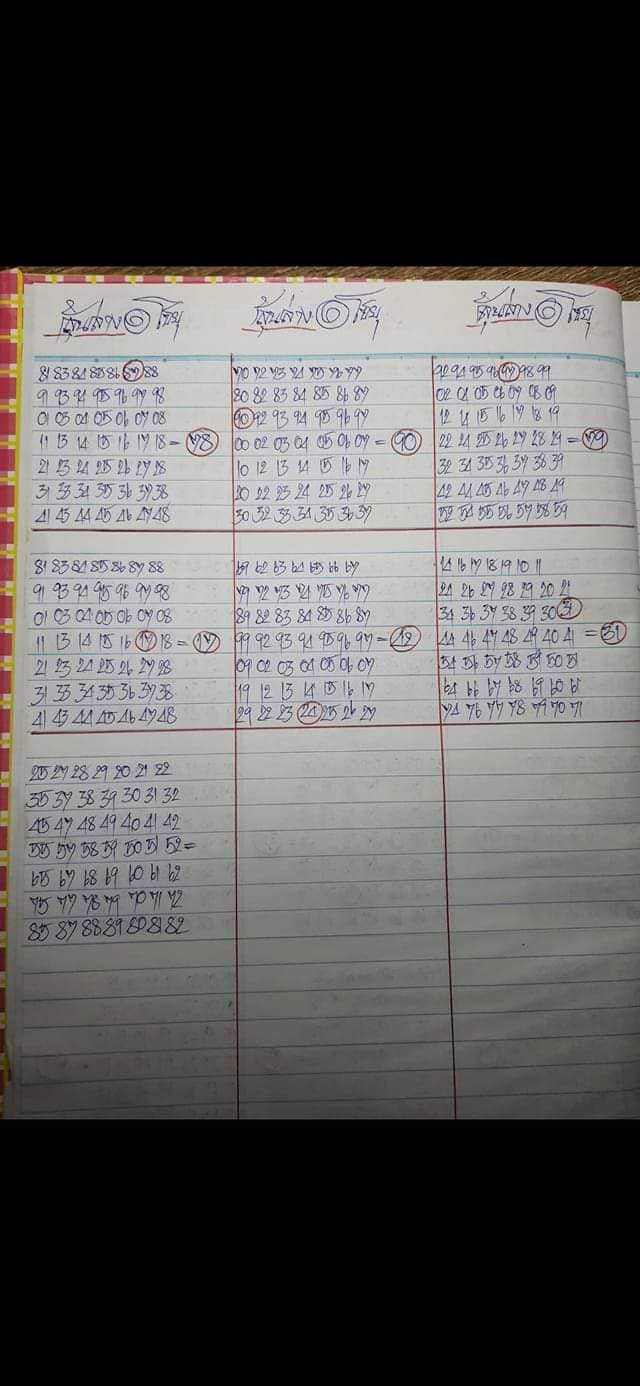 ลุ้นล่าง ๑
81 83 84 85 86 87 88
91 93 94 95 96 97 98
01 03 04 05 06 07 08
11 13 14 15 16 17 18 = 78
21 23 24 25 26 27 28
31 33 34 35 36 37 38
41 43 44 45 46 47 48
ลุ้นล่าง ๑
70 72 73 74 75 76 77
80 82 83 84 85 86 87
90 92 93 94 95 96 97
00 02 03 04 05 06 07 = 90
10 12 13 14 15 16 17
20 22 23 24 25 26 27
30 32 33 34 35 36 37
ลุ้นล่าง ๑
92 94 95 96 97 98 99
02 04 05 06 07 08 09
12 14 15 16 17 18 19
22 24 25 26 27 28 29 = 79
32 34 35 36 37 38 39
42 44 45 46 47 48 49
52 54 55 56 57 58 59
81 83 84 85 86 87 88
91 93 94 95 96 97 98
01 03 04 05 06 07 08
11 13 14 15 16 17 18 = 17
21 23 24 25 26 27 28
31 33 34 35 36 37 38
41 43 44 45 46 47 48
69 62 63 64 65 66 67
79 72 73 74 75 76 77
89 82 83 84 85 86 87
99 92 93 94 95 96 97 = 42
09 02 03 04 05 06 07
19 12 13 14 15 16 17
29 22 23 24 25 26 27
14 16 17 18 19 10 11
24 26 27 28 29 20 21
34 36 37 38 39 30 31
44 46 47 48 49 40 41 = 31
54 56 57 58 59 50 51
64 66 67 68 69 60 61
74 76 77 78 79 70 71
25 27 28 29 20 21 22
35 37 38 39 30 31 32
45 47 48 49 40 41 42
55 57 58 59 50 51 52 =
65 67 68 69 60 61 62
75 77 78 79 70 71 72
85 87 88 89 80 81 82